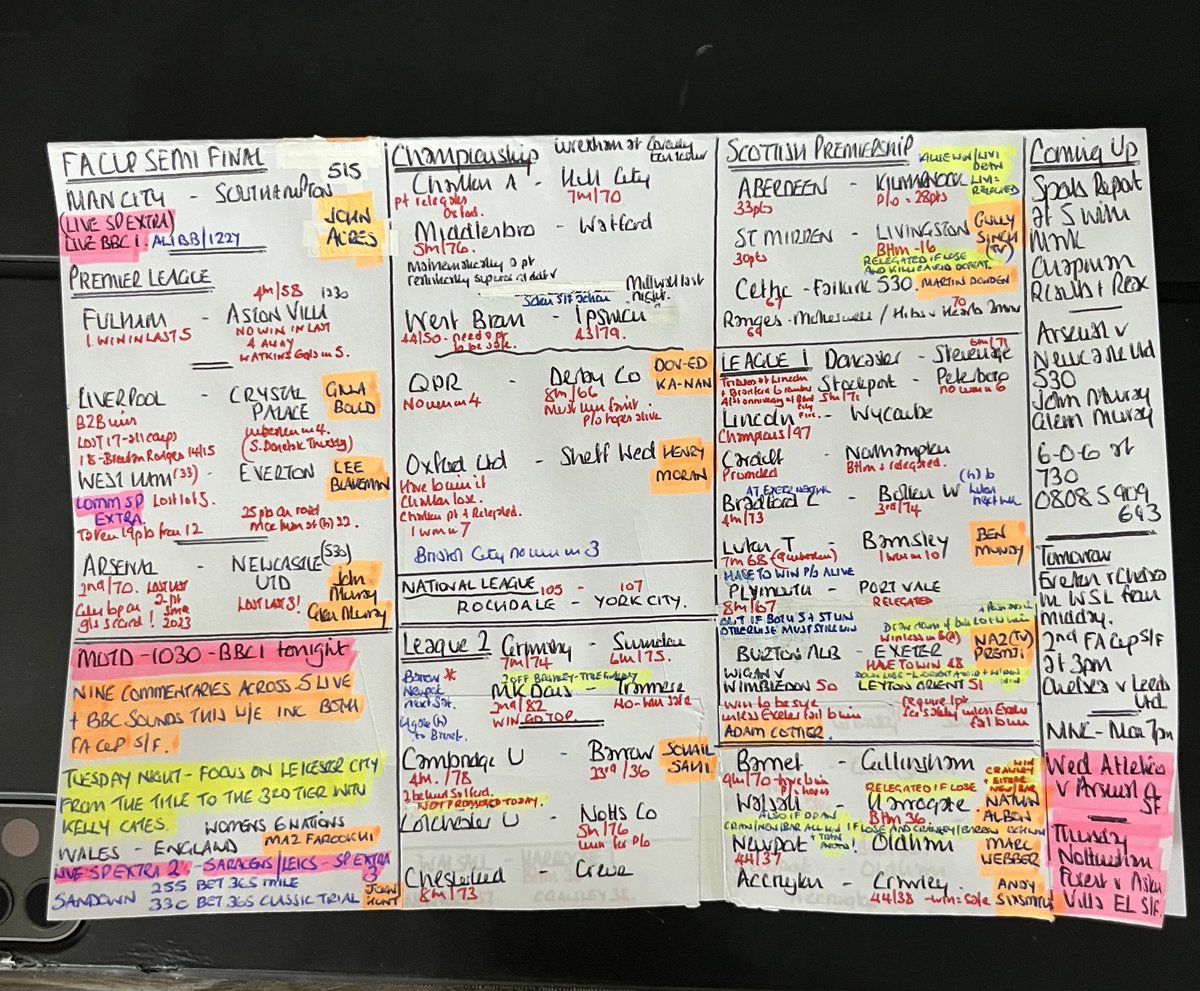 FA CUP SEMI FINAL
515
MAN CITY - SOUTHAMPTON
(LIVE SP EXTRA)
LIVE BBC 1. ALI BB/1227
JOHN
ACRES
PREMIER LEAGUE
4th/58 1230
FULHAM - ASTON VILLA
1 WIN IN LAST 5
NO WIN IN LAST
4 AWAY
WATKINS 6 gls in 5.
LIVERPOOL - CRYSTAL
PALACE
B2B wins
LOST 17 - all comps
18 - Brendan Rodgers 14/15
unbeaten in 4.
(S. Donetsk Thursday)
WEST HAM (33) - EVERTON
LEE
BLAKEMAN
COMM SP
EXTRA.
Lost 1 of 5.
Taken 19 pts from 12
25 pts on road
more than at (h) 22.
ARSENAL - NEWCASTLE
UTD
(530)
2nd/70. LOST LAST
2 - 1st
since
2023
LOST LAST 3!
John
Murray
Glenn Murray
MOTD - 1030 - BBC1 tonight
NINE COMMENTARIES ACROSS 5 LIVE
+ BBC SOUNDS THIS W/E INC BOTH
FA CUP S/F.
TUESDAY NIGHT - FOCUS ON LEICESTER CITY
FROM THE TITLE TO THE 3RD TIER WITH
KELLY CATES.
WOMENS 6 NATIONS
WALES - ENGLAND MAZ FAROOKHI
LIVE SP EXTRA 2 - SARACENS/LEICS - SP EXTRA
3
SANDOWN 255 BET 365 MILE
330 BET 365 CLASSIC TRIAL
JOHN
HUNT
Championship
Wrexham at Coventry
Charlton A - Hull City
7th/70
pt relegates
Oxford.
Middlesbro - Watford
5th/76.
Millwall last
night.
West Brom - Ipswich
44/50 - need a pt
to be safe.
43/79.
QPR - Derby Co
No win in 4
8th/66
Must win for
p/o hopes alive
DON-ED
KA-NAN
Oxford Utd - Sheff Wed
HENRY
MORAN
Have to win if
Charlton lose.
Charlton pt & Relegated.
1 win in 7
Bristol City no win in 3
NATIONAL LEAGUE 105 - 107
ROCHDALE - YORK CITY.
League 2
Grimsby - Swindon
7th/74 6th/75.
2 OFF BROMLEY - TITLE FOR THEM
Barrow *
Newpt
next Sat.
MK Dons - Tranmere
2nd/82
WIN, GO TOP.
No win same
Cambridge U - Barrow
4th/78
2 behind Salford.
NOT PROMOTED TODAY.
23rd/36
SOHAIL
SAHI
Colchester U - Notts Co
5th/76
Chesterfield - Crewe
8th/73
SCOTTISH PREMIERSHIP
KILLIE WIN/LIVI
DRAW
LIVI
RELEGATED
ABERDEEN - KILMARNOCK
33pts
P/o - 28pts
ST MIRREN - LIVINGSTON
30pts
Bttm - 16
RELEGATED IF LOSE
AND KILLIE AVOID DEFEAT.
GULLY
SINGH
(TV)
Celtic - Falkirk 530 MARTIN DOWDEN
67
Rangers - Motherwell / Hibs v Hearts 2moro
69
70
LEAGUE 1
Doncaster - Stevenage
6th/71
Stockport - Peterboro
5th/72
no win in 6
Lincoln - Wycombe
Champions/97
Cardiff - Northampton
Promoted
Bttm + relegated.
AT EXETER NEXT WK
Bradford C - Bolton W
4th/73
3rd/74
(h) to
Luton
next wk
Luton T - Barnsley
7th 68 (9 unbeaten)
1 win in 10
HAVE TO WIN P/O ALIVE
BEN
MUNDY
PLYMOUTH - PORT VALE
8th/67
RELEGATED
OUT IF BOTH 5+ST WIN
OTHERWISE MUST STILL WIN
BURTON ALB - EXETER
Winless in 8 (a)
HAVE TO WIN 48
WIGAN V
WIMBLEDON 50
LEYTON ORIENT 51
Win to be safe
unless Exeter fail to win
require 1pt
for safety unless Exeter
fail to win
ADAM COTTIER.
Barnet - Gillingham
9th/70
RELEGATED IF LOSE
Walsall - Harrogate
Bttm 36.
NATHAN
ALBON
Newport - Oldham
44/37
MARC
WEBBER
Accrington - Crawley
44/38 - win = safe
ANDY
SIXSMITH
Coming Up
Sports Report
at 5 with
Mark
Chapman
Results + Reax
Arsenal v
Newcastle Utd
530
John Murray
Glenn Murray
6-0-6 at
730
08085 909
693
Tomorrow
Everton v Chelsea
in WSL from
midday.
2nd FA Cup S/F
at 3pm
Chelsea v Leeds
Utd.
MNC - Mon 7pm
Wed Atletico
v Arsenal CL
SF
Thursday
Nottingham
Forest v Aston
Villa EL S/F.